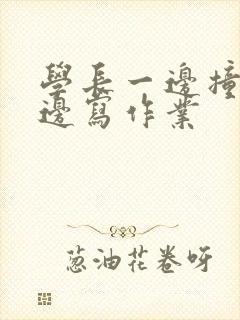 學長一邊撞
邊寫作業
葱油花卷呀